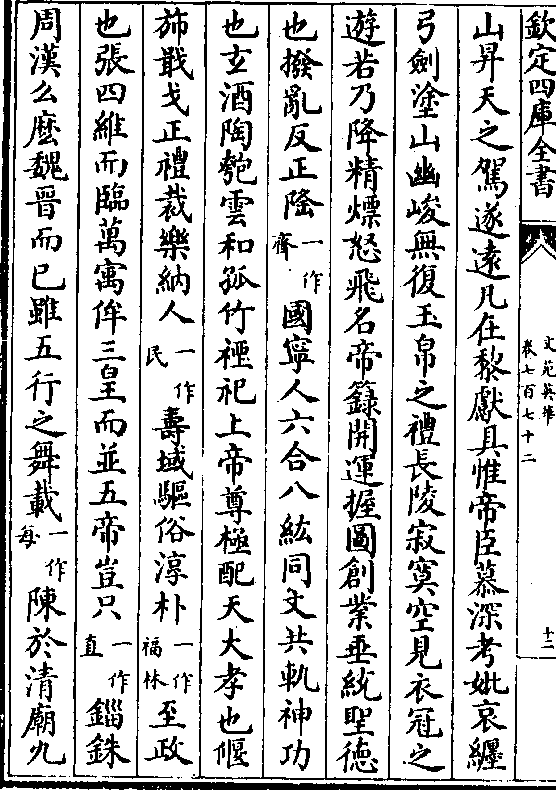 欽定四庫全書
文苑英華
卷七百七十二
十二
山昇天之駕遂遠凡在黎獻具惟帝臣慕深考妣哀纏
弓劒塗山幽峻無復玉帛之禮長陵寂寞空見衣冠之
遊若乃降精熛怒飛名帝籙開運握圖創業垂統聖德
也撥亂反正隆一作齊國寧人六合八紘同文共軌神功
也玄酒陶匏雲和孤竹禋祀上帝尊極配天大孝也偃
斾戢戈正禮裁樂納人一作民壽域驅俗淳朴一作福林至政
也張四維而臨萬寓侔三皇而並五帝豈只一作直錙銖
周漢么麽魏晉而已雖五行之舞載一作每陳於清廟九